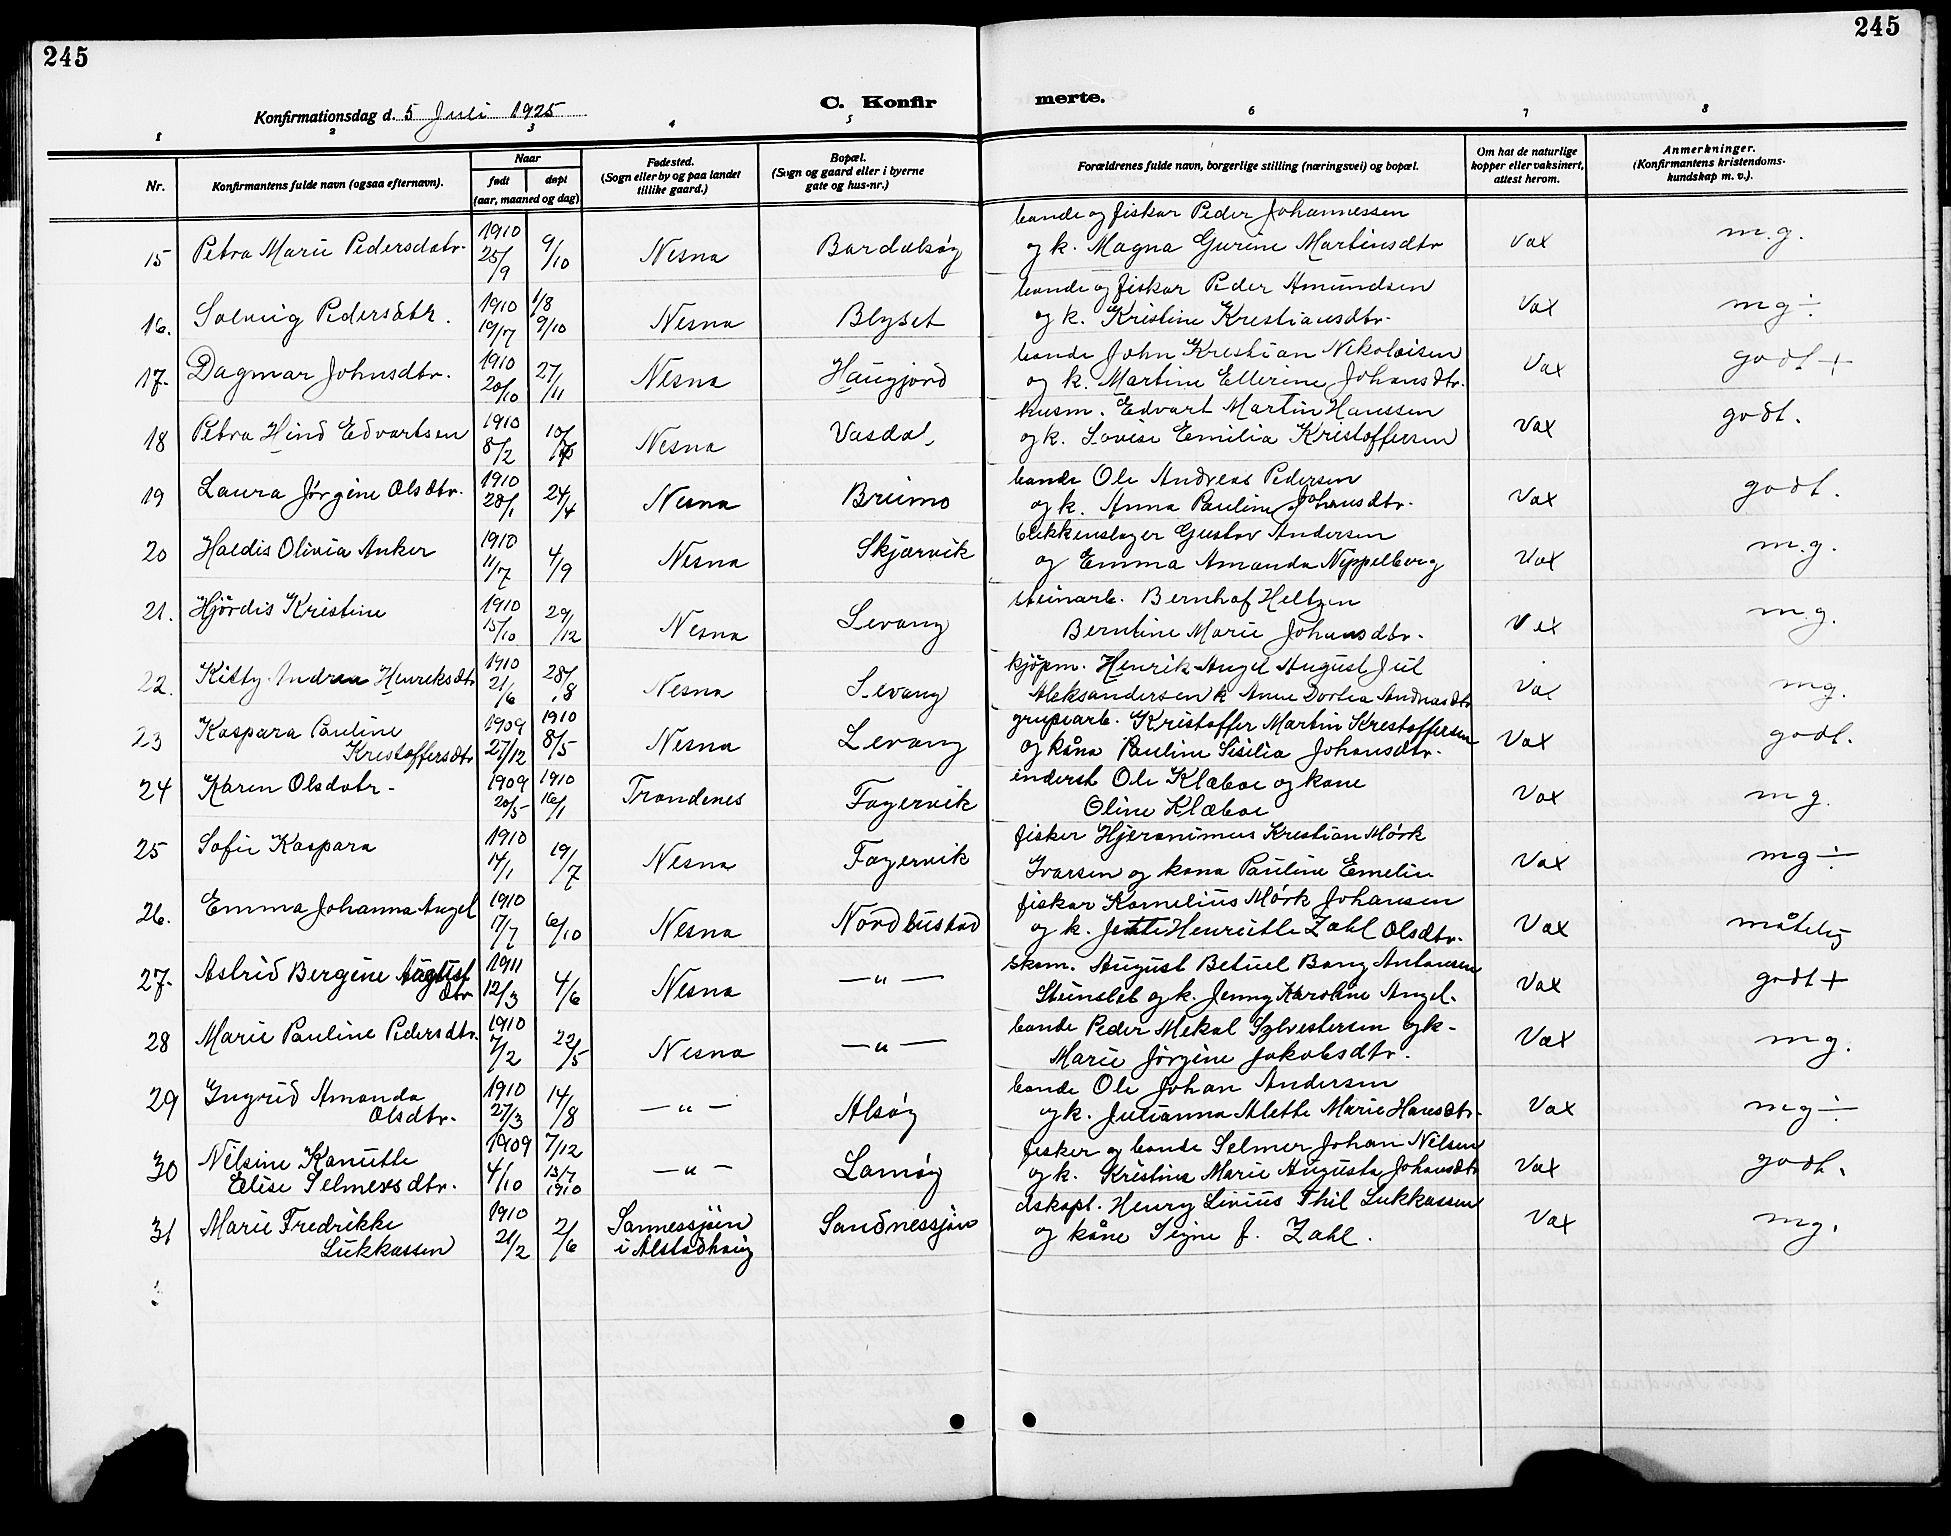 245
245
Konfirmationsdag d. 5 Juli 1925
C. Konfir
merte.
1 2 3 4 5 6 7 8
Nr.
Konfirmantens fulde navn (ogsaa efternavn).
Naar
født
døpt
(aar, maaned og dag)
Fødested.
(Sogn eller by og paa landet
tillike gaard.)
Bopæl.
(Sogn og gaard eller i byerne
gate og hus-nr.)
Forældrenes fulde navn, borgerlige stilling (næringsvei) og bopæl.
Om hat de naturlige
kopper eller vaksinert,
attest herom.
Anmerkninger.
(Konfirmantens kristendoms-
kundskap m. v.).
15 Petra Marie Pedersdatr. 1910 25/9 9/10 Nesna Bardalsøy bonde og fisker Peder Johannessen
og k. Magna Gurine Martinsdtr Vax m.g.
16. Solveig Pedersdtr. 1910 19/7 1/8 9/10 Nesna Blyset bonde og fisker Peder Amundsen
og k. Kristine Krestiansdtr. Vax mg ÷
17. Dagmar Johnsdtr. 1910 20/10 27/11 Nesna Haugjord bonde John Krestian Nikolaisen
og k. Martine Ellerine Johansdtr. Vax godt +
18 Petra Hind Edvartsen 1910 8/2 10/ Nesna Vasdal husm. Edvart Martin Hanssen
og k. Lovise Emilia Kristoffersen Vax godt.
19 Laura Jørgine Olsdtr. 1910 28/1 24/4 Nesna Bruimo bonde Ole Andreas Pedersen
og k. Anna Pauline Johansdtr. Vax godt.
20 Haldis Olivia Anker 1910 11/7 4/9 Nesna Skjærvik blikkenslager Gustav Andersen
og Emma Amanda Nyppelberg Vax m.g.
21. Hjördis Kristine 1910 15/10 29/12 Nesna Levang steinarb. Bernhof Heltzen
Berntine Marie Johansdtr. Vax m.g.
22. Kitty Andrea Henriksdtr 1910 21/6 28/8 Nesna Levang kjöpm. Henrik Angel August Jul
Aleksandersen k Anne Dortea Andreasdtr Vax mg.
23 Kaspara Pauline
Krestoffersdtr 1909 27/12 1910 8/5 Nesna Levang grubearb. Kristoffer Martin Krestoffersen
og kåna Pauline Sisilia Johansdtr. Vax godt.
24 Karen Olsdatr. 1909 20/5 1910 16/1 Trondenes Fagervik inderst Ole Klæboe og kone
Oline Klæboe Vax mg.
25 Sofie Kaspara 1910 14/1 19/7 Nesna Fagervik fisker Hjeronimus Krestian Mörk
Ivarsen og kona Pauline Emelie Vax mg ÷
26. Emma Johanna Angel 1910 17/7 6/10 Nesna Nordbustad fisker Kornelius Mörk Johansen
og k. Henriette Zahl Olsdtr. Vax måtelig
27. Astrid Bergine August
dtr 1911 12/3 4/6 Nesna — " — skom. August Betuel Bang Antonsen
Stenslet og k. Jenny Karoline Angel. Vax godt +
28 Marie Pauline Pedersdtr. 1910 7/2 22/5 Nesna — " — bonde Peder Mekal Sylvestersen og k.
Marie Jörgine Jakobsdtr. Vax mg.
29 Ingrid Amanda
Olsdtr. 1910 27/3 14/8 — " — Alsøy bonde Ole Johan Andersen
og k. Julianna Alette Marie Hansdtr. Vax mg ÷
30 Nilsine Kanutte
Elise Selmersdtr. 1909 4/10 7/12 13/7 1910 — " — Lamøy fisker og bonde Selmer Johan Nilsen
og k. Kristine Marie Augusta Johansdtr Vax godt.
31 Marie Fredrikke
Lukkassen 1910 21/2 2/6 Sannessjöen
i Alstadhaug Sandnessjöen dskapt. Henry Livius Thil Lukkassen
og kåne Signe f. Zahl. Vax mg.